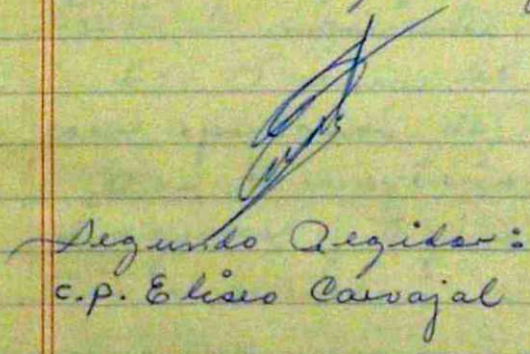 Segundo Regidor:
c.p. Eliseo Carvajal